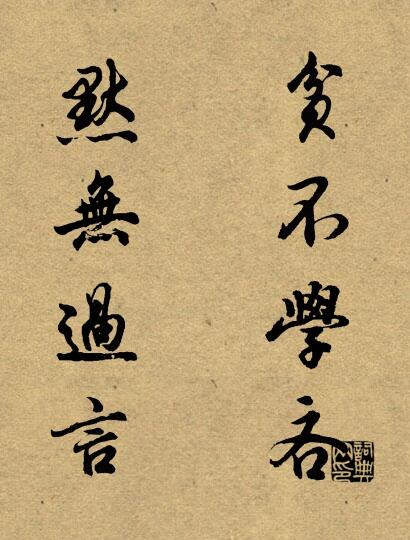 貧不學吝
默無過言